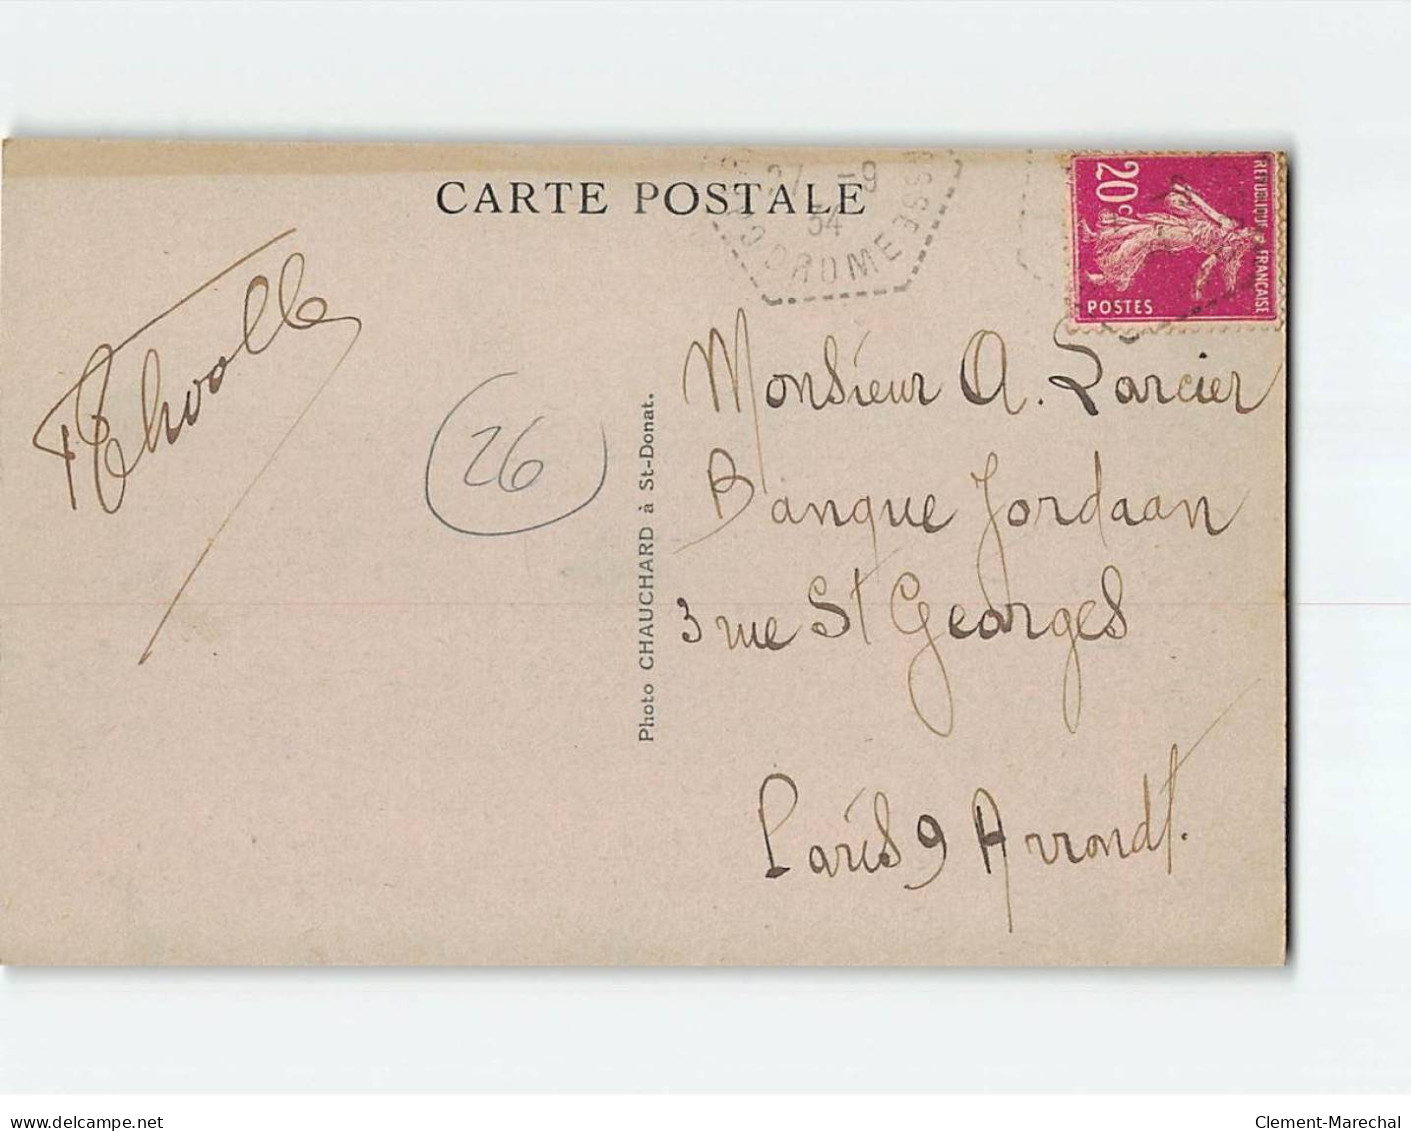 CARTE POSTALE
27 -9
34
DROME
20c
REPUBLIQUE FRANCAISE
POSTES
Photo CHAUCHARD à St-Donat.
26
Monsieur A. Larcier
Banque Jordaan
3 rue St Georges
Paris 9 Arrondt.
delcampe.net
Clement-Marechal